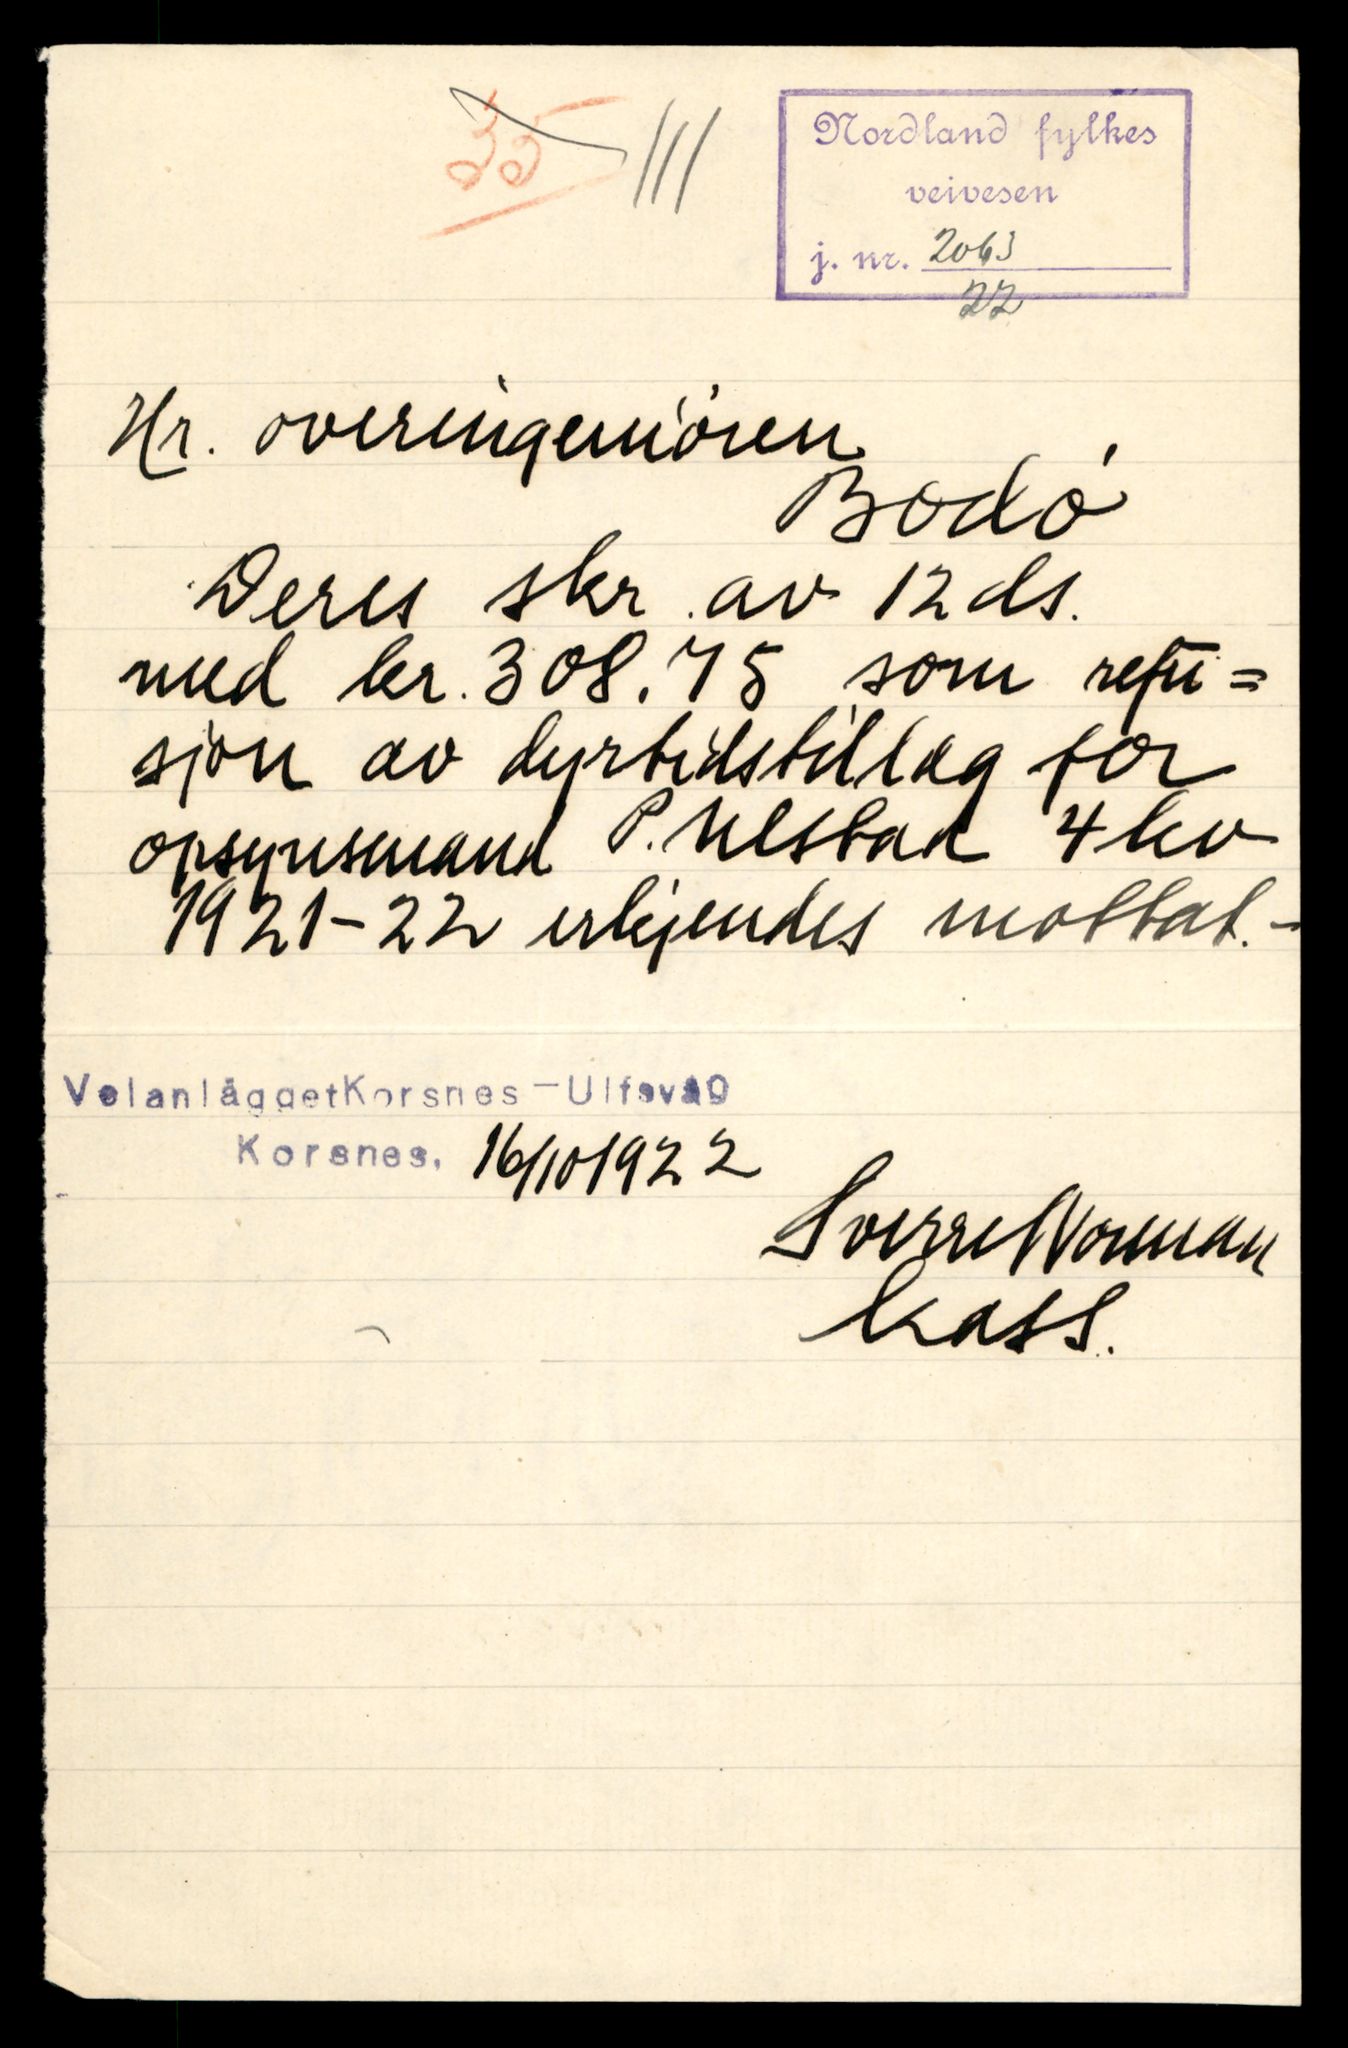 35 III
Nordland fylkes
veivesen
j. nr. 2063
22
Hr. overingeniören
Bodó
Deres skr. av 12 ds.
med kr. 308.75 som refu=
sjon av dyrtidstillæg for
opsynsmand P. Ulstad 4 kv
1921-22 erkjendes mottat.-
VeianläggetKorsnes-Ulfsvåg
Korsnes, 16/10 1922
Sverre Norman
kass.